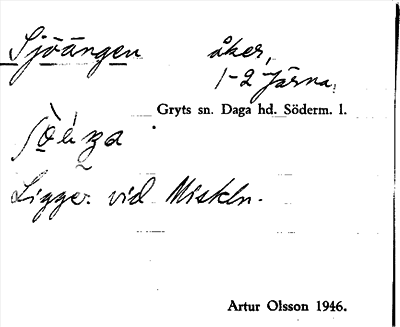 Sjöängen åker,
1-2 Järna.
Gryts sn. Daga hd. Söderm. l.
Ligger vid Miskln.
Artur Olsson 1946.